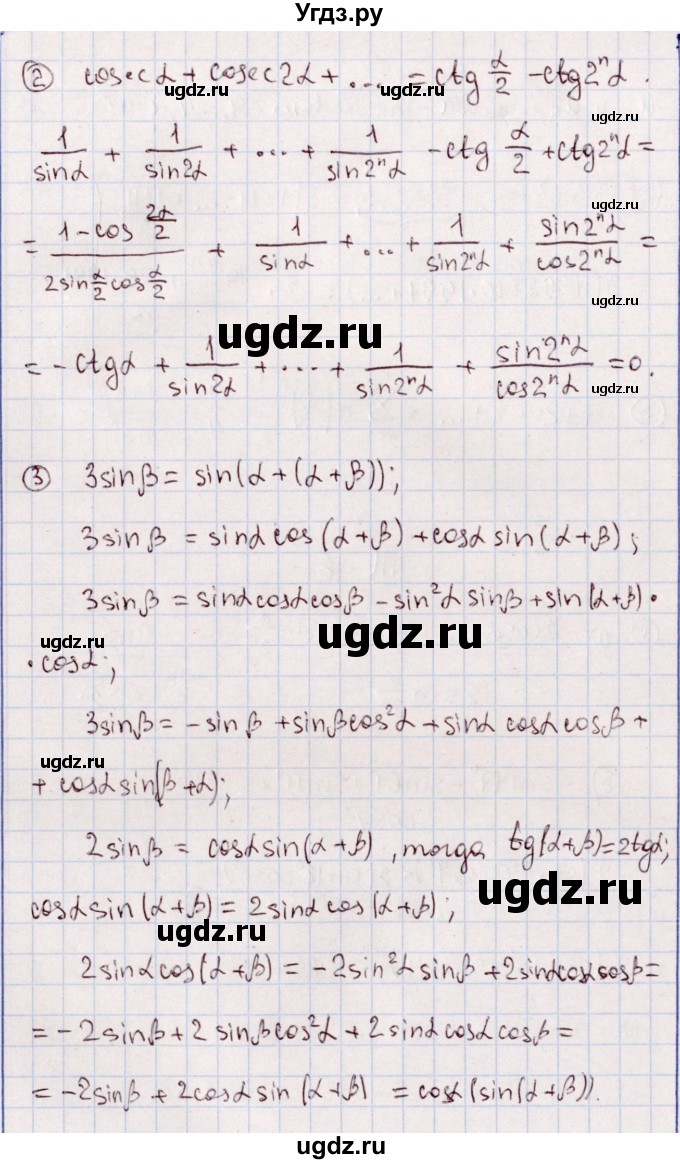 Угдз.ру
② cosec α + cosec 2α + ... = ctg α/2 - ctg 2ⁿα.
ugdz.ru ugdz.ru ugdz.ru
1/sinα + 1/sin2α + ... + 1/sin2ⁿα - ctg α/2 + ctg 2ⁿα =
= (1 - cos 2α/2)/(2sin α/2 cos α/2) + 1/sinα + ... + 1/sin2ⁿα + sin2ⁿα/cos2ⁿα =
ugdz.ru ugdz.ru
= - ctgα + 1/sin2α + ... + 1/sin2ⁿα + sin2ⁿα/cos2ⁿα = 0.
ugdz.ru
③ 3sinβ = sin(α + (α + β));
3sinβ = sinα cos(α + β) + cosα sin(α + β);
3sinβ = sinα cosα cosβ - sin²α sinβ + sin(α + β) •
ugdz.ru ugdz.ru
• cosα;
3sinβ = - sinβ + sinβ cos²α + sinα cosα cosβ +
ugdz.ru
+ cosα sin(β + α);
2sinβ = cosα sin(α + β), тогда tg(α + β) = 2tgα;
ugdz.ru
cosα sin(α + β) = 2sinα cos(α + β);
ugdz.ru
2sinα cos(α + β) = -2sin²α sinβ + 2sinα cosα cosβ =
= -2sinβ + 2sinβ cos²α + 2sinα cosα cosβ =
= -2sinβ + 2cosα sin(α + β) = cosα(sin(α + β)).
ugdz.ru